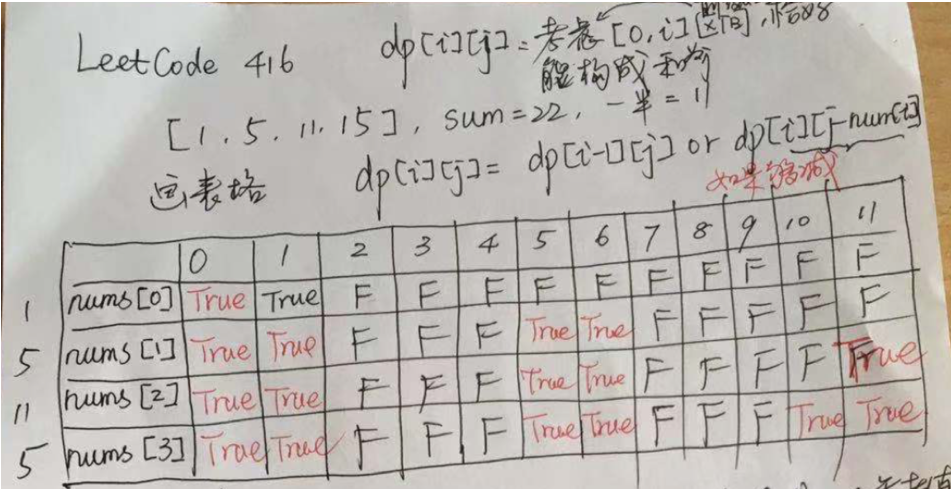 LeetCode 416
dp[i][j] = 考虑[0,i][区间],恰好
能构成和为j
[1, 5, 11, 15], sum=22, 一半 = 11
画表格 dp[i][j] = dp[i-1][j] or dp[i][j-num[i]]
如果够减
0 1 2 3 4 5 6 7 8 9 10 11
1 nums[0] True True F F F F F F F F F F
5 nums[1] True True F F F True True F F F F F
11 nums[2] True True F F F True True F F F F True
5 nums[3] True True F F F True True F F F True True